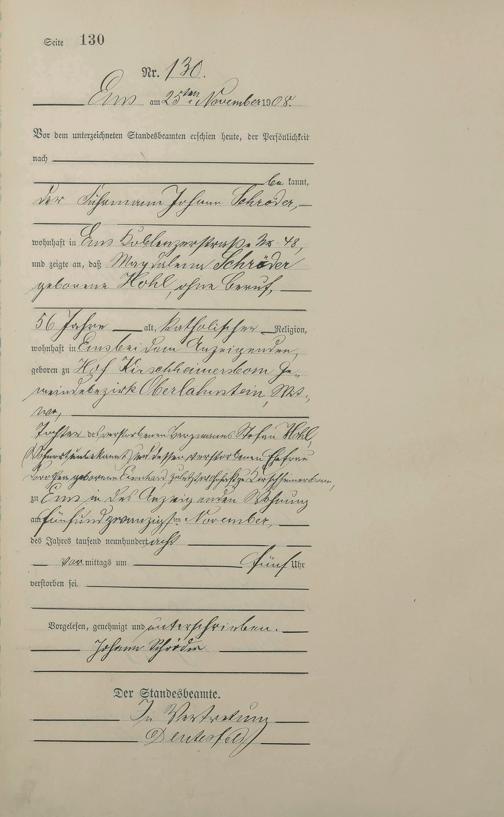 Seite 130
Nr. 130.
Ems am 25ten November 1908.
Vor dem unterzeichneten Standesbeamten erschien heute, der Persönlichkeit
nach
be kannt,
der Fuhrmann Johann Schröder,
wohnhaft in Ems Koblenzerstraße No 48,
und zeigte an, daß Magdalena Schröder
geborene Hohl, ohne Beruf,
56 Jahre alt, katholischer Religion,
wohnhaft in Ems bei dem Anzeigenden,
geboren zu Hof Ge-
meindebezirk Oberlahnstein, Wit-
we,
Tochter des verstorbenen Bergmanns Stefan Hohl,
und dessen verstorbenen Ehefrau
geborenen zuletzt wohnhaft
zu Ems in des Anzeigenden Wohnung
am fünfundzwanzigsten November
des Jahres tausend neunhundert acht
vor mittags um fünf Uhr
verstorben sei.
Vorgelesen, genehmigt und unterschrieben.
Johann Schröder
Der Standesbeamte.
In Vertretung